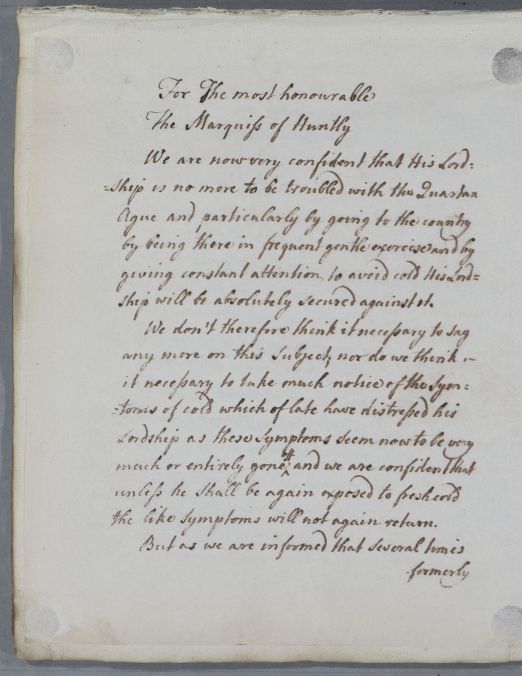 For The most honourable
The Marquiss of Huntly
We are now very confident that His Lord=
=ship is no more to be troubled with the Quartan
Ague and particularly by going to the country
by being there in frequent gentle exercise and by
giving constant attention to avoid cold His Lord=
ship will be absolutely secured against it.
We don't therefore think it necessary to say
any more on this Subject, nor do we think –
it necessary to take much notice of the Sym=
=toms of cold which of late have distressed his
Lordship as these Symptoms seem now to be very
much or entirely gone off and we are confident that
unless he shall be again exposed to fresh cold
the like Symptoms will not again return.
But as we are informed that Several times
formerly